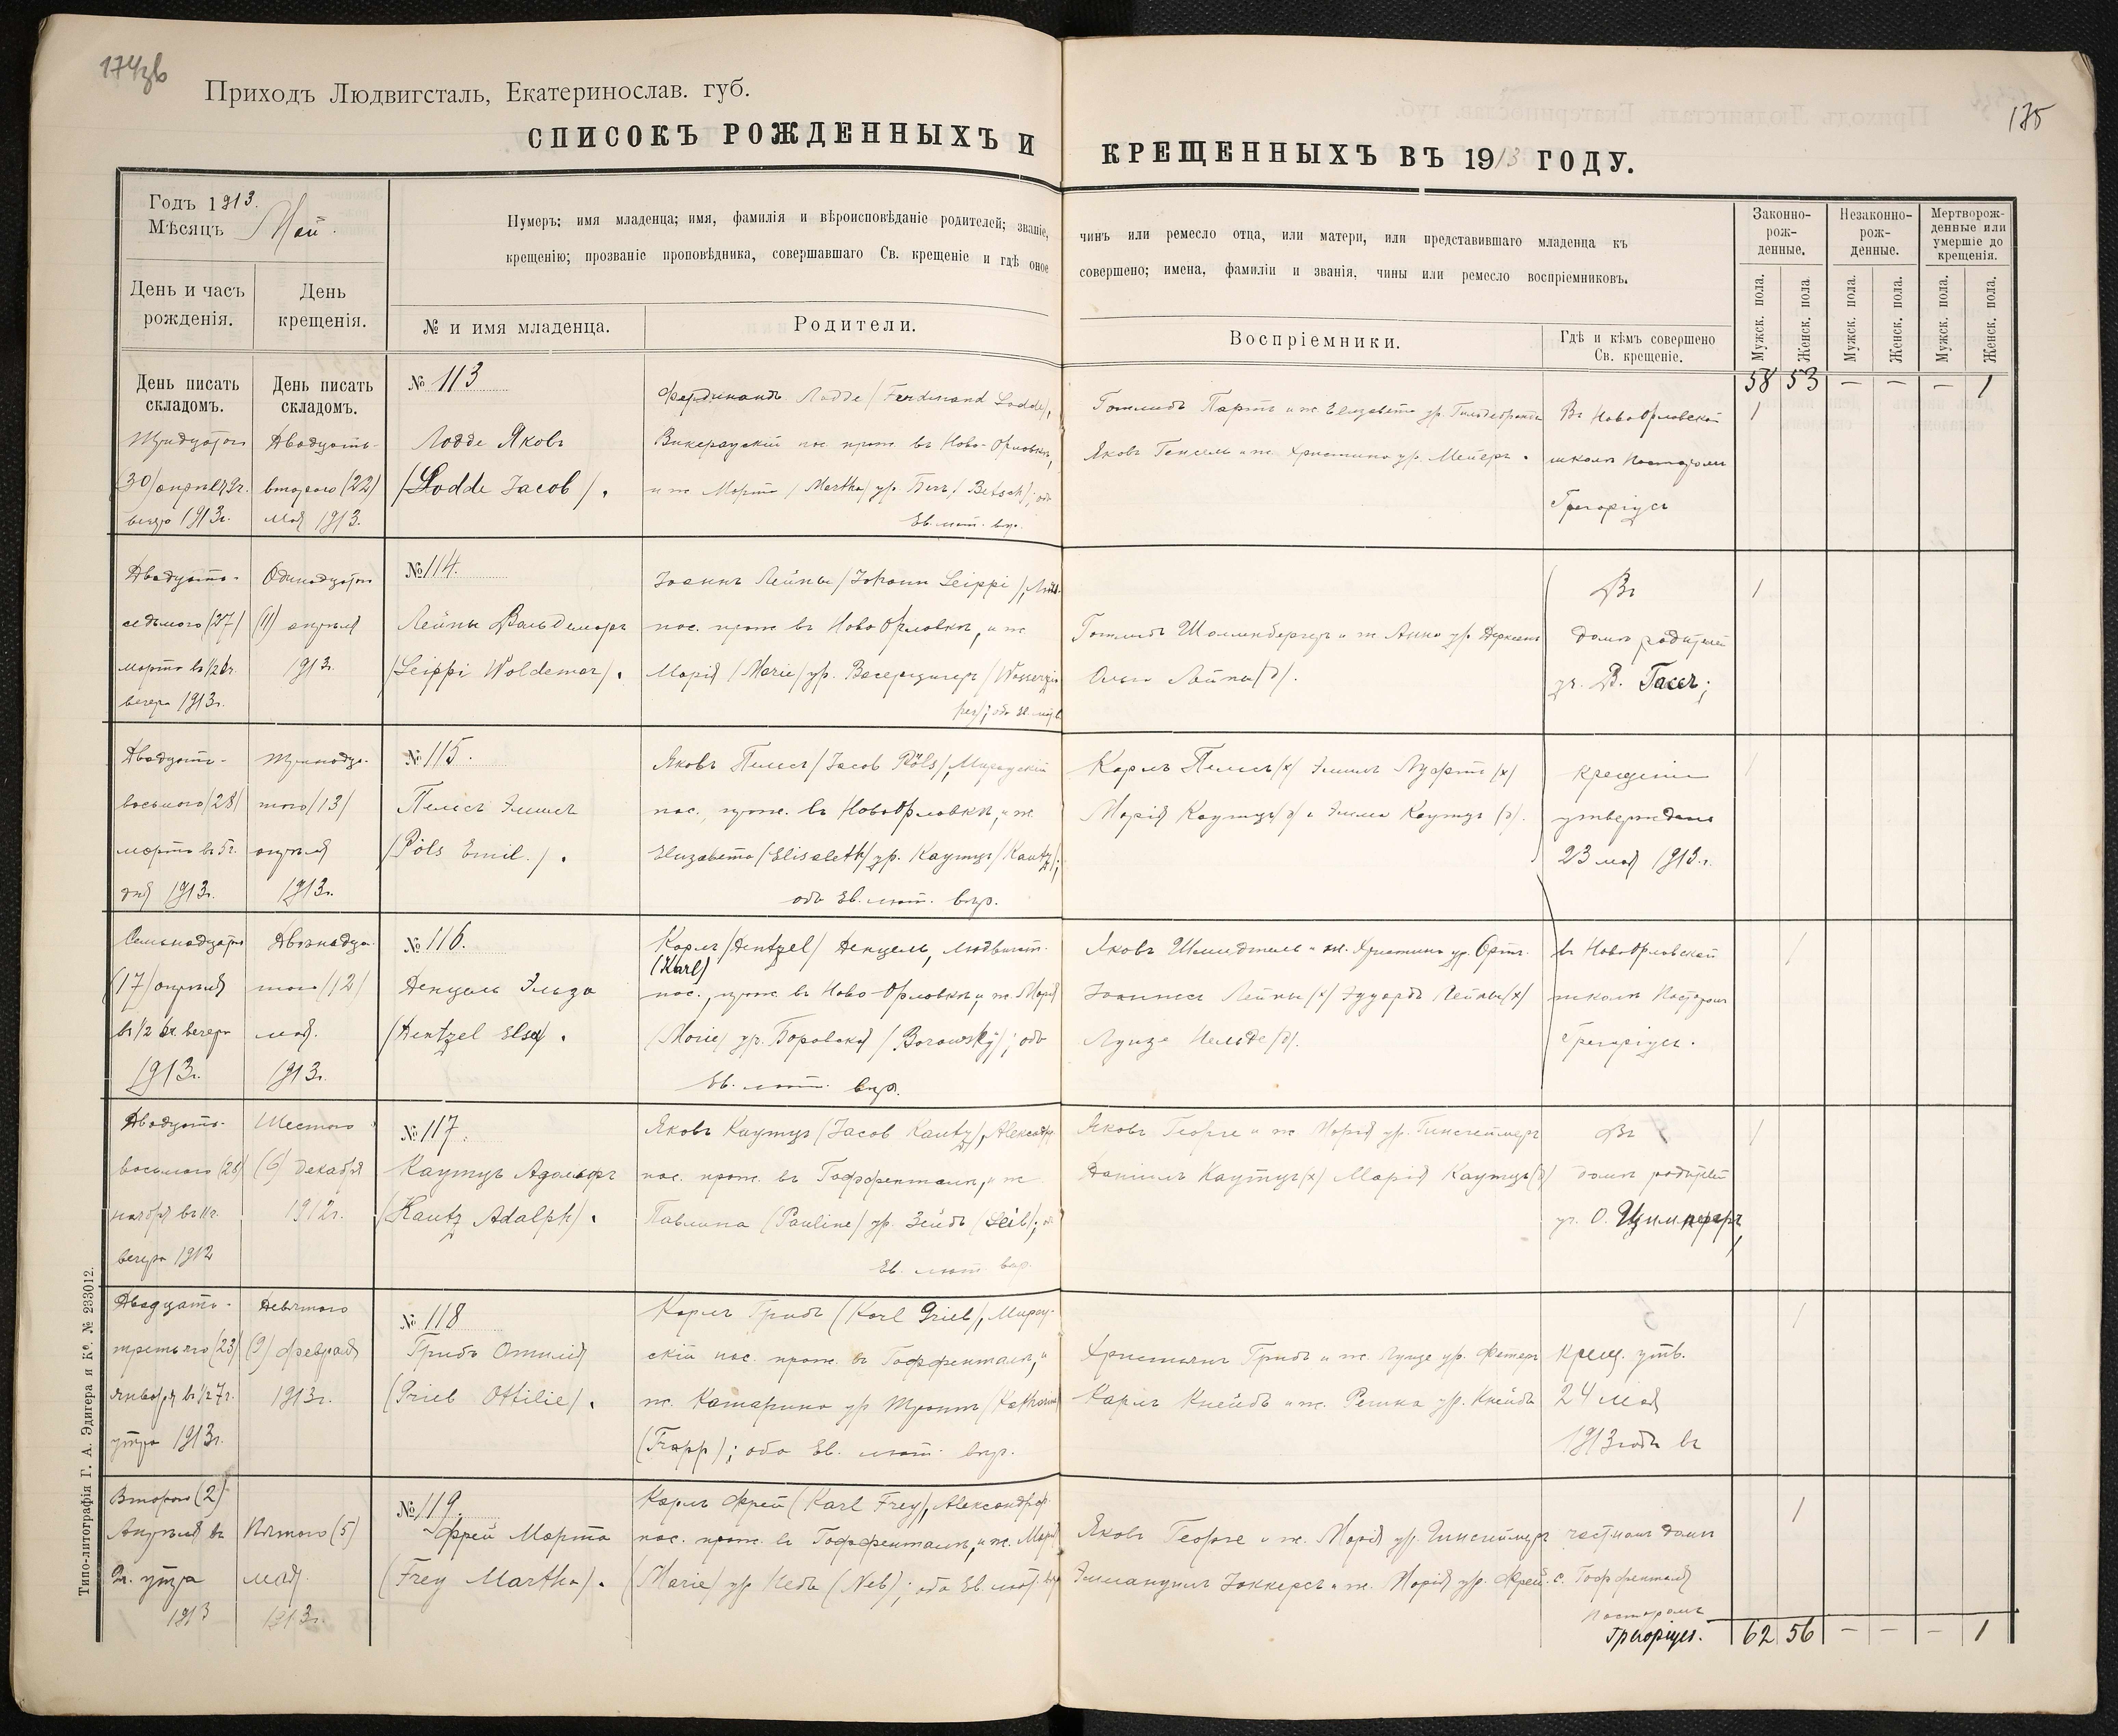 174
Приходъ Людвигсталь, Екатеринослав. губ.
175
СПИСОКЪ РОЖДЕННЫХЪ И КРЕЩЕННЫХЪ ВЪ 1913 ГОДУ.
Годъ 1913.
Мѣсяцъ Май.
Нумеръ; имя младенца; имя, фамилія и вѣроисповѣданіе родителей; званіе, чинъ или ремесло отца, или матери, или представившаго младенца къ
крещенію; прозваніе проповѣдника, совершавшаго Св. крещеніе и гдѣ оное совершено; имена, фамиліи и званія, чины или ремесло воспріемниковъ.
Законно-
рож-
денные.
Незаконно-
рож-
денные.
Мертворож-
денные или
умершіе до
крещенія.
День и часъ
рожденія.
День
крещенія.
№ и имя младенца.
Родители.
Воспріемники.
Гдѣ и кѣмъ совершено
Св. крещеніе.
Мужск. пола.
Женск. пола.
Мужск. пола.
Женск. пола.
Мужск. пола.
Женск. пола.
58 53 — — — 1
День писать
складомъ.
День писать
складомъ.
Тридцатаго
(30) апрѣля 9 ч.
вечера 1913 г.
Двадцать-
второго (22)
мая 1913.
№ 113
Лодде Яковъ
(Lodde Jacob).
Фердинандъ Лодде (Ferdinand Lodde),
пос. прож. въ Ново-Орловкѣ,
и ж. Марта (Martha) ур. (Betsch); оба
Ев. лют. вѣр.
и ж. Елизавета ур.
Яковъ и ж. Христина ур. Мейеръ.
Въ НовоОрловской
школѣ Пасторомъ
Грегоріусъ
1
Двадцать-
седьмого (27)
марта въ
вечера 1913 г.
Одинадцатаго
(11) апрѣля
1913 г.
№ 114.
Лейпи Вальдемаръ
(Leippi Woldemar).
Іоаннъ Лейпи (Johann Leippi),
пос. прож. въ НовоОрловкѣ, и ж.
Марія (Marie) ур.
Готлибъ Шелленбергеръ и ж. Анна ур.
Ольга Лейпи (д).
Въ
домѣ родителей
уч. В. Гассъ;
1
Двадцать-
восьмого (28)
марта въ 5 ч.
дня 1913 г.
Тринадца-
таго (13)
апрѣля
1913 г.
№ 115.
Пельсъ Эмиль
(Pöls Emil.).
Яковъ Пельсъ (Jacob Pöls), Мирауский
пос., прож. въ НовоОрловкѣ, и ж.
Елизавета (Elisabeth) ур. Каутцъ (Kautz);
оба Ев. лют. вѣр.
Карлъ Пельсъ (х) Эмиль (х)
Марія Каутцъ (д) и Эмма Каутцъ (д).
крещеніе
утверждено
23 мая 1913 г.
1
Семнадцатаго
(17) апрѣля
въ 1/2 вечера
1913 г.
Двѣнадца-
таго (12)
мая.
1913 г.
№ 116.
Денцель Эльза
(Dentzel Elsa).
Карлъ (Dentzel) Денцель, Людвигст.
(Karl)
пос., прож. въ Ново-Орловкѣ, и ж. Марія
(Marie) ур. Боровски (Borowsky); оба
Ев. лют. вѣр.
Яковъ и ж. Христина ур. Ортъ.
Іоаннесъ Лейпи (х) Эдуардъ Лейпи (х)
Луизе (д).
въ НовоОрловской
школѣ Пасторомъ
Грегоріусъ.
1
Двадцать-
восьмого (28)
ноября въ 11 ч.
вечера 1912
Шестого
(6) декабря
1912 г.
№ 117.
Каутцъ Адольфъ
(Kautz Adolph).
Яковъ Каутцъ (Jacob Kautz),
пос. прож. въ Гоффенталѣ, и ж.
Павлина (Pauline) ур. Зейбъ (Seib);
Ев. лют. вѣр.
Яковъ Георге и ж. Марія ур. Гинсгеймеръ
Даніилъ Каутцъ (х) Марія Каутцъ (д)
Въ
домѣ родителей
уч. О.
1
Двадцать-
третьяго (23)
января въ 1/2 7 ч.
утра 1913 г.
Девятого
(9) февраля
1913 г.
№ 118
Грибъ Отилія
(Grieb Ottilie).
Карлъ Грибъ (Karl Grieb), Мирау-
скій пос. прож. въ Гоффенталѣ, и
ж. Катарина ур. Траппъ (Katharina)
(Trapp); оба Ев. лют. вѣр.
Христьянъ Грибъ и ж. Луизе ур.
Карлъ Кнейбъ и ж. ур. Кнейбъ
крещ. утв.
24 мая
1913 года въ
1
Второго (2)
Апрѣля въ
утра
1913
Пятого (5)
мая.
1913 г.
№ 119.
Фрей Марта
(Frey Martha).
Карлъ Фрей (Karl Frey),
пос. прож. въ Гоффенталѣ, и ж. Марія
(Marie) ур. Небъ (Neb); оба Ев. лют. вѣр.
Яковъ Георге и ж. Марія ур. Гинсгеймеръ
Эммануилъ и ж. Марія ур. Фрей.
частномъ домѣ
с. Гоффенталя
Пасторомъ
Грегоріусъ.
1
62 56 — — — 1
Типо-литографія Г. А. Эдигера и Ко. № 233012.